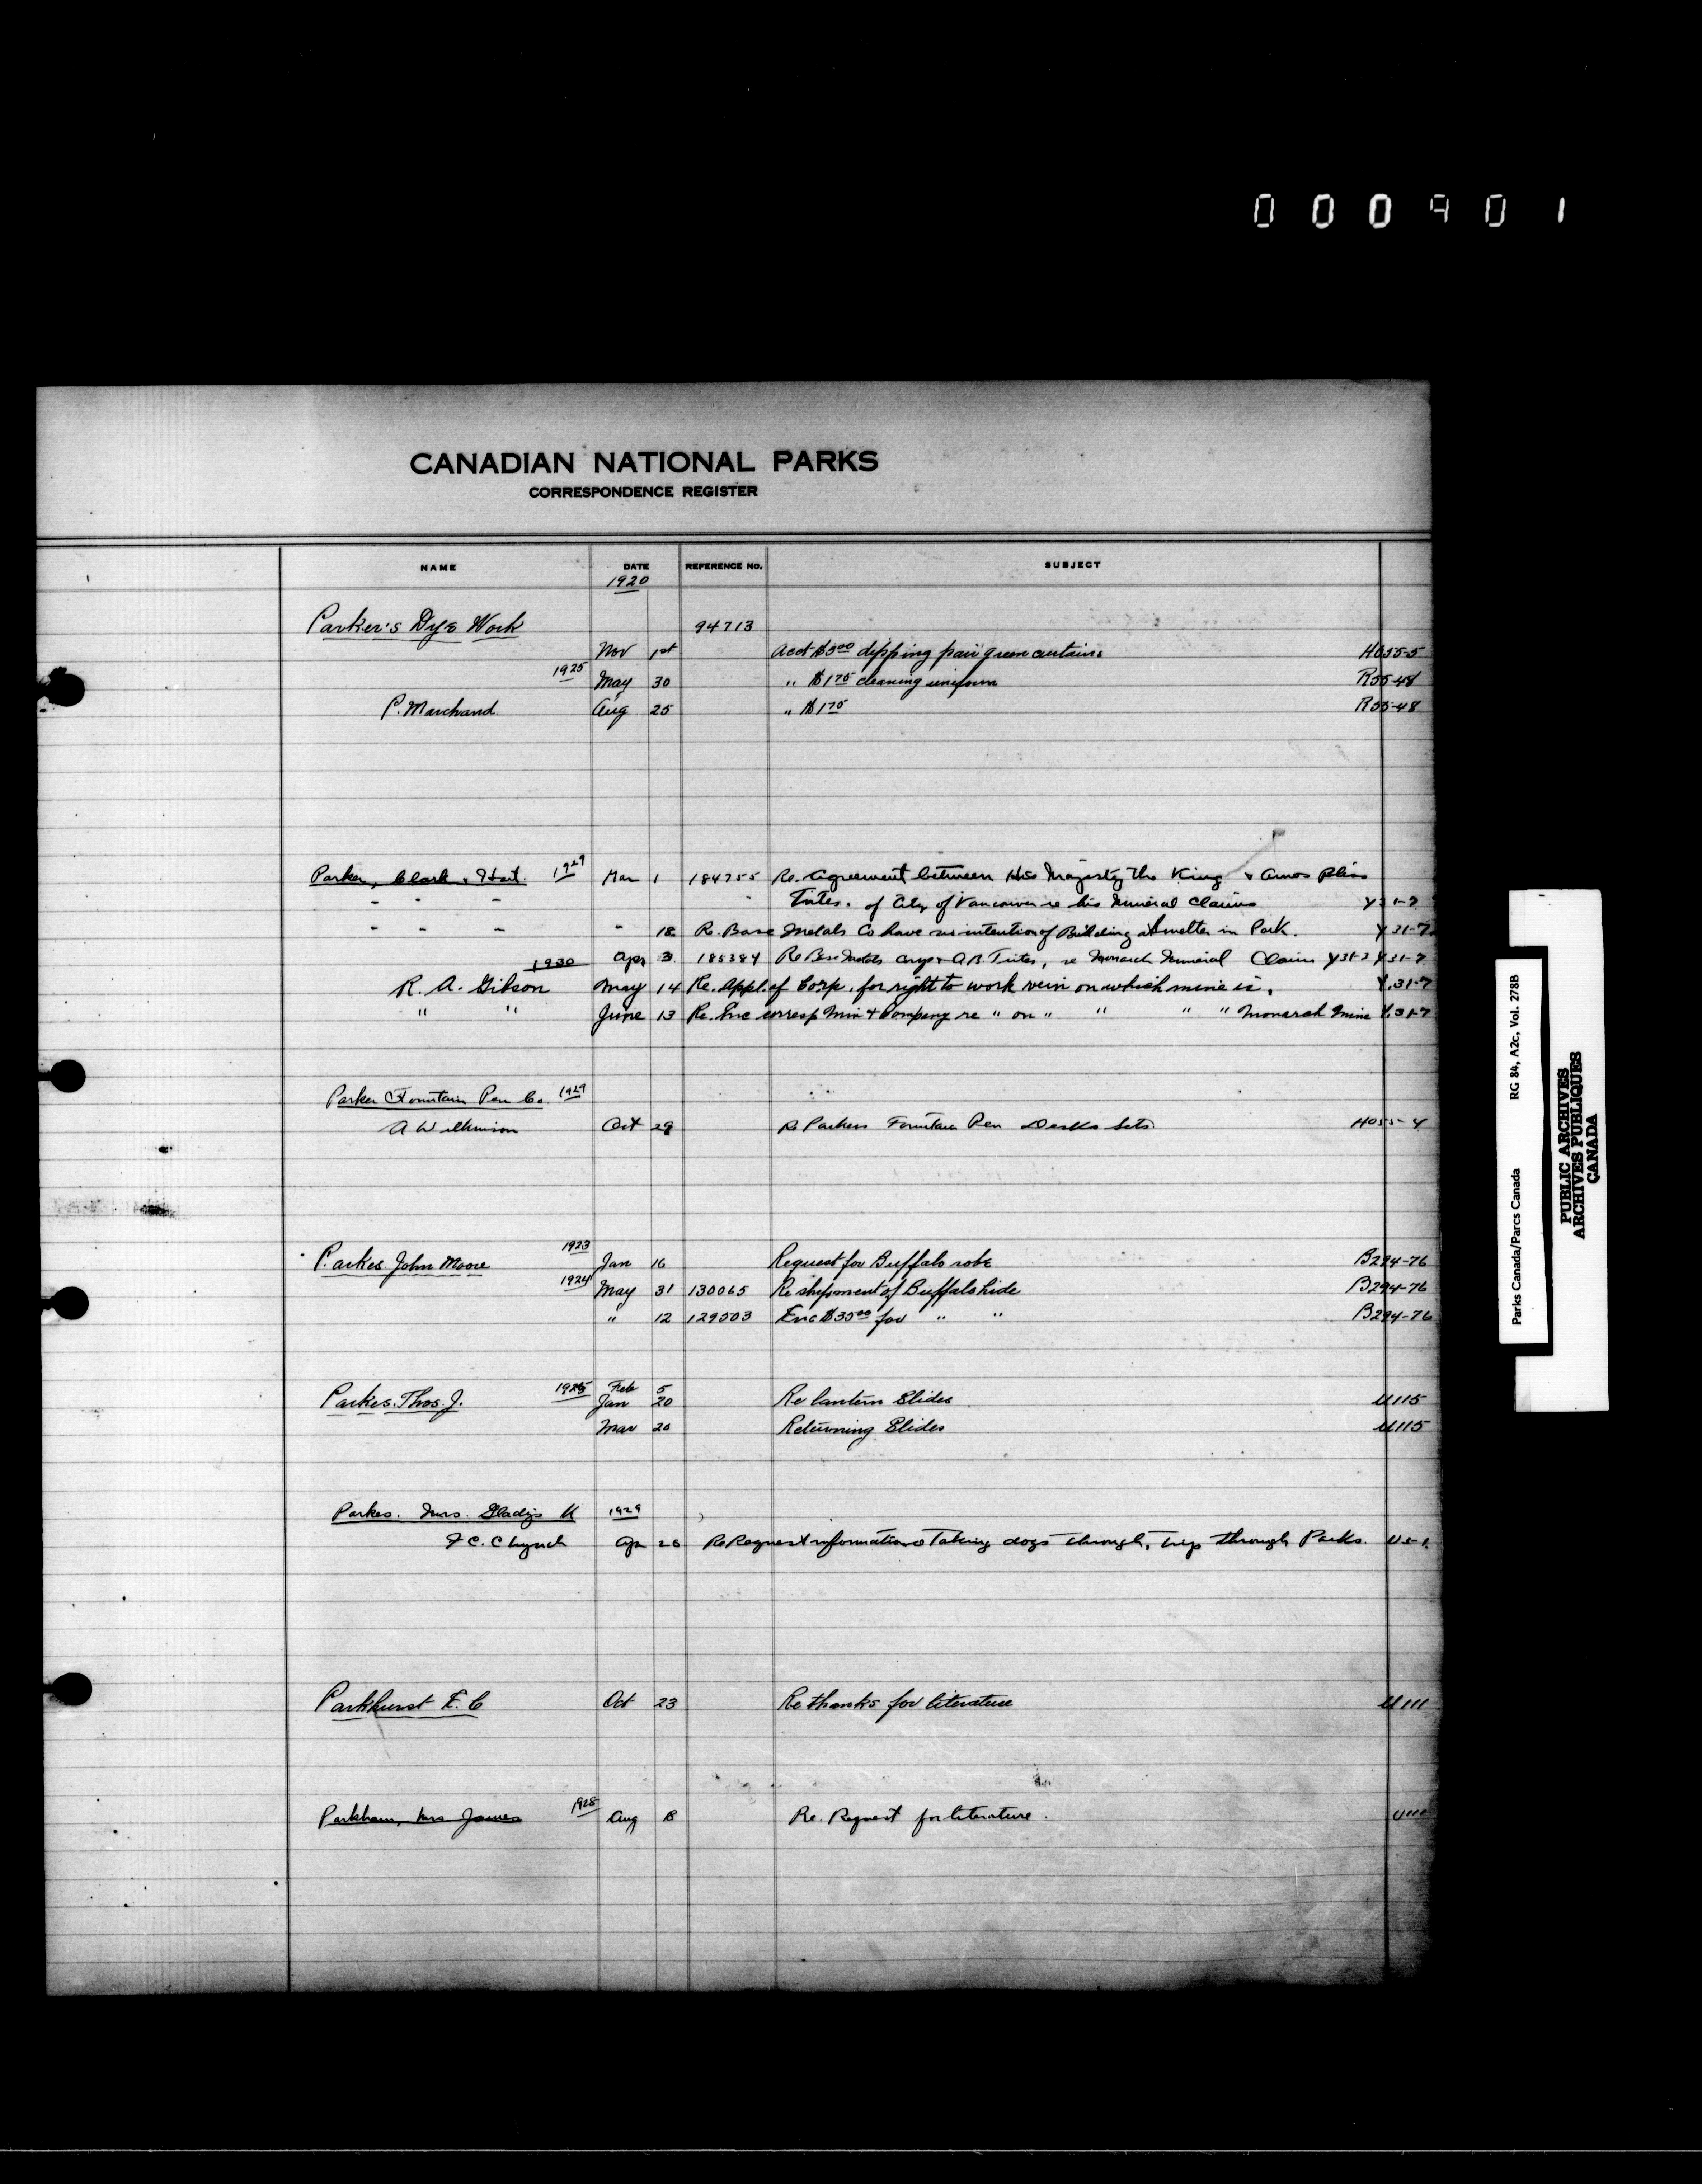 000901
CANADIAN NATIONAL PARKS
CORRESPONDENCE REGISTER
NAME DATE REFERENCE No. SUBJECT
1920
Parker's Dye Work 94713
Nov 1st acct $3.00 dipping pair green curtains HO55-5
1925 May 30 " $1.75 cleaning uniform R55-48
P. Marchand. Aug 25 " $1.75 R55-48
Parker, Clark & Hart. 1929 Mar 1 184755 Re. Agreement between His Majesty the King & Amos Bliss
" " " Trites. of City of Vancouver re his Mineral Claims Y31-7
" " " " 18 Re. Base Metals Co have no intention of Building a Smelter in Park. Y31-7
Apr 3 185384 Re Base Metals Corp & A.B. Trites, re Monarch Mineral Claim Y31-7
1930
R. A. Gibson May 14 Re. Appl. of Corp. for right to work vein on which mine is. Y.31-7
" " June 13 Re. Enc corresp Min & Company re " on " " " " Monarch Mine Y.31-7
Parker Fountain Pen Co. 1929
A Wilkinson Oct 29 Re Parkers Fountain Pen Desks Sets HO55-4
Parkes John Moore 1923 Jan 16 Request for Buffalo robe B294-76
1924 May 31 130065 Re shipment of Buffalo hide B294-76
" 12 129503 Enc $35.00 for " " B294-76
1925 Feb 5
Parkes. Thos. J. Jan 20 Re lantern Slides U115
Mar 20 Returning Slides U115
Parkes. Mrs. Gladys U 1929
F C. C Lynch Apr 26 Re Request information re Taking dogs through, trip through Parks. U5-1.
Parkhurst E. C Oct 23 Re thanks for literature U111
Parkham, Mrs James 1928 Aug 8 Re. Request for literature. U111
Parks Canada/Parcs Canada RG 84, A2c, Vol. 278B
PUBLIC ARCHIVES
ARCHIVES PUBLIQUES
CANADA